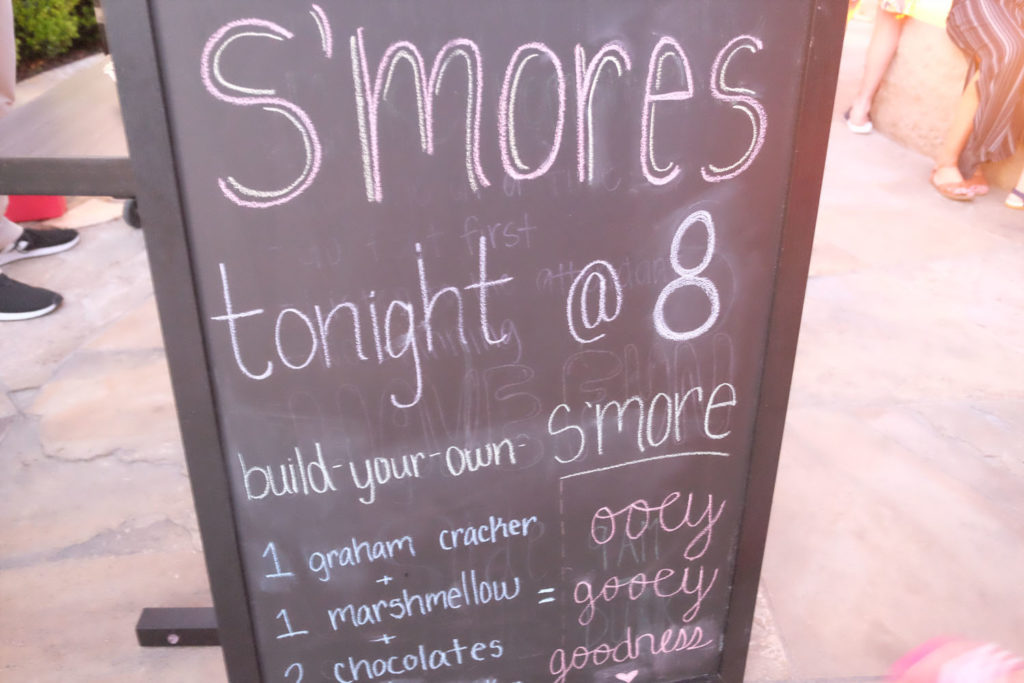 S'mores
tonight @ 8
build-your-own- S'more
1 graham cracker
ooey
+
1 marshmellow = gooey
+
2 chocolates
goodness